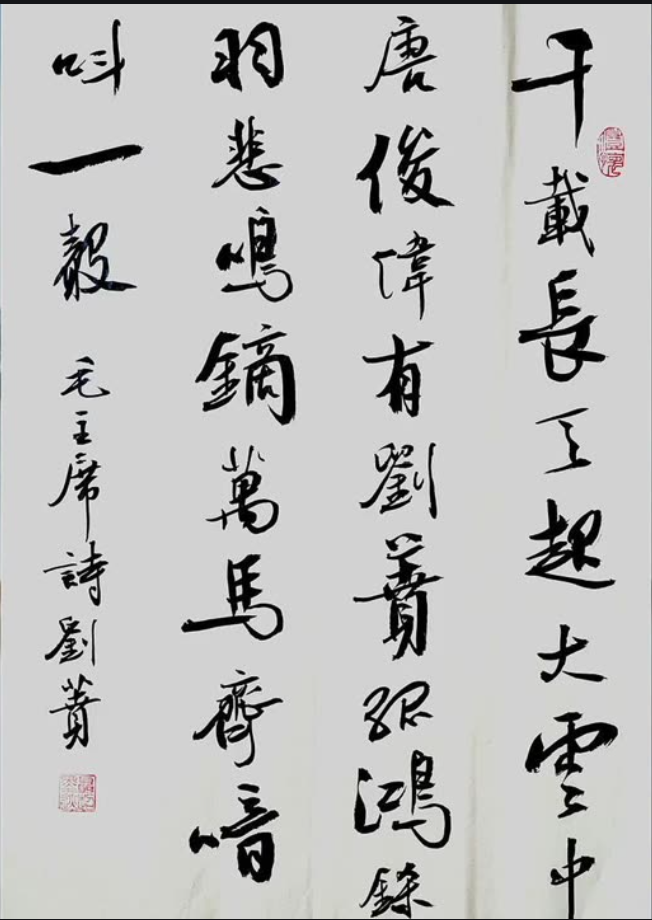 千載長天起大雲中
唐俊偉有劉蕡孤鴻鎩
羽悲鳴鏑萬馬齊喑
叫一聲
毛主席詩劉蕡